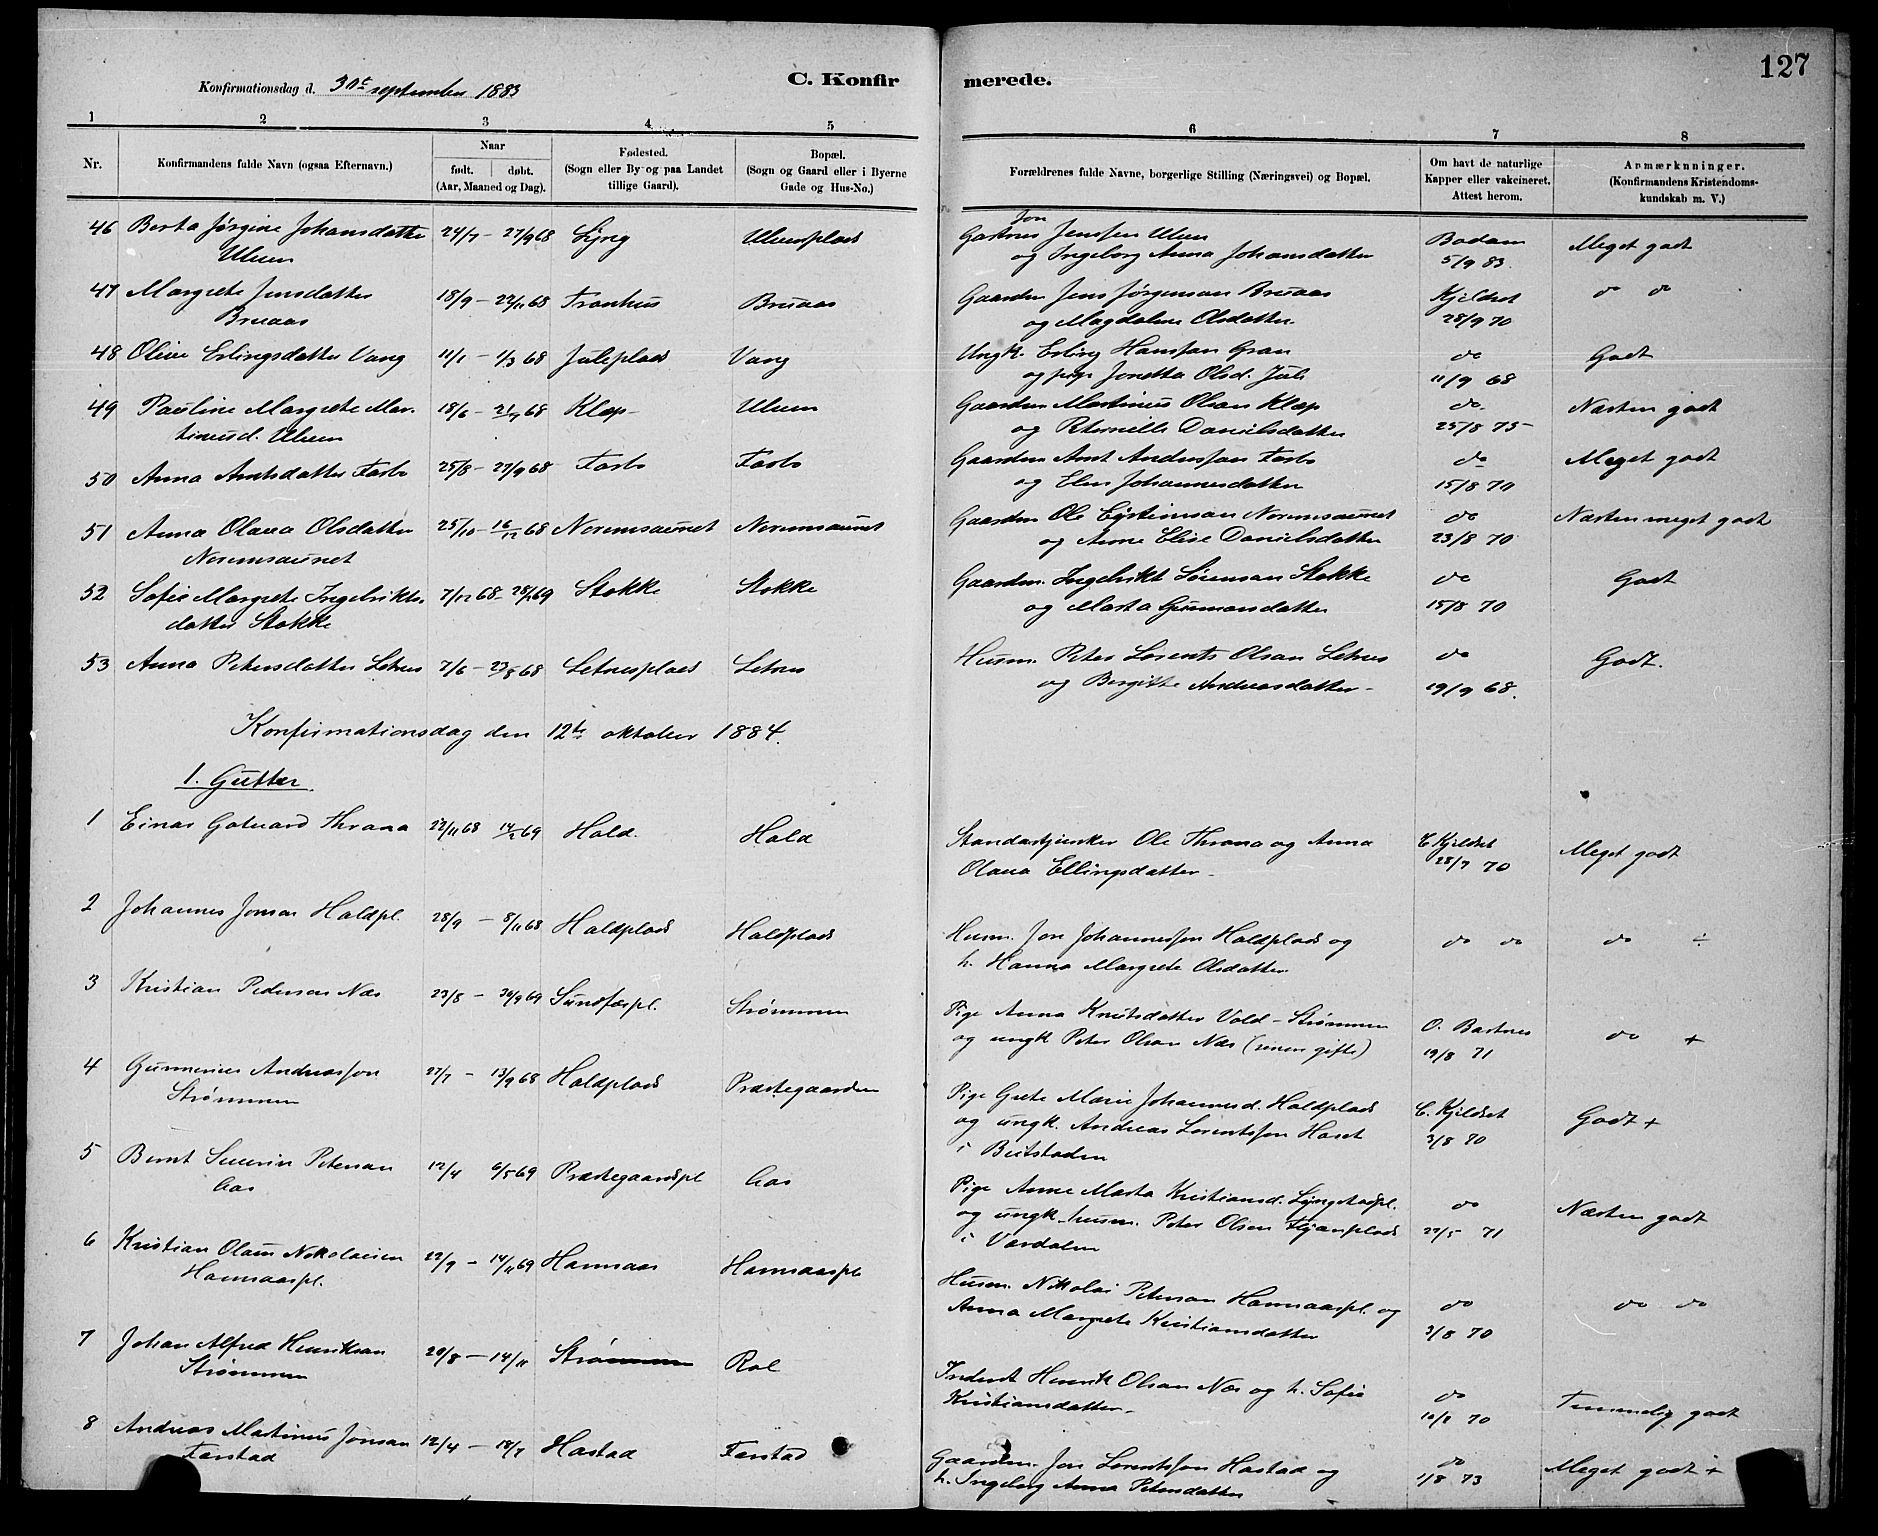 127
C. Konfir merede.
Konfirmationsdag d. 30te september 1883
1 2 3 4 5 6 7 8
Nr.
Konfirmandens fulde Navn (ogsaa Efternavn.)
Naar
født. døbt.
(Aar, Maaned og Dag).
Fødested.
(Sogn eller By og paa Landet
tillige Gaard).
Bopæl.
(Sogn og Gaard eller i Byerne
Gade og Hus-No.)
Forældrenes fulde Navne, borgerlige Stilling (Næringsvei) og Bopæl.
Om havt de naturlige
Kopper eller vakcineret.
Attest herom.
Anmærkninger.
(Konfirmandens Kristendoms-
kundskab m. V.)
46 Berta Jørgine Johansdatter 24/7 - 27/9 68 Lyng Ulvenplads Jon Jenssen Ulven Badam Meget godt
Ulven og Ingeborg Anna Johansdatter 5/9 83.
47 Margrete Jensdatter 18/9 - 22/11 68 Tronhus Bruaas Gaardm Jens Jørgensen Bruaas Kjeldset do do
Bruaas og Magdalene Olsdatter. 28/9 70
48 Oline Erlingsdatter Vang 11/1 - 1/3 68 Juleplads Vang Ungk. Erling Hanssen Gran do Godt
og pige Jonetta Olsd. Jule 11/9 68
49 Pauline Margrete Mar- 18/6 - 21/7 68 Klæp Ulven Gaardm Martinus Olsen Klæp do Næsten godt
tinusd. Ulven og Peternille Danielsdatter 25/8 75
50 Anna Arntsdatter Færbo 25/8 - 27/9 68 Færbo Færbo Gaardm Arnt Andersen Færbo do Meget godt
og Elen Johannesdatter 15/8 70
51 Anna Olava Olsdatter 25/10 - 16/12 68 Noremsaunet Noremsaunet Gaardm Ole Eystensen Noremsaunet do Næsten meget godt
Noremsaunet og Anne Elise Danielsdatter 23/8 70
52 Sofie Margrete Ingebrikts 7/12 68 - 28/2 69 Stokke Stokke Gaardm. Ingebrikt Sørensen Stokke do Godt
datter Stokke og Marta Gunnarsdatter 15/8 70
53 Anna Petersdatter Letnes 7/6 - 23/8 68 Letnesplads Letnes Husm. Peter Lorents Olsen Letnes do Godt.
og Bergitte Andreasdatter 19/9 68.
Konfirmationsdag den 12te oktober 1884.
1. Gutter
1 Einar Gotvard Thrana 22/11 68 14/2 69 Hald. Hald Standartjunker Ole Thrana og Anna E Kjeldset Meget godt
Olava Ellingsdatter 28/7 70
2 Johannes Jonsen Haldpl. 28/9 - 8/11 68 Haldplads Haldplads Husm. Jon Johannessen Haldplads og do do do ÷
h. Hanna Margrete Olsdatter
3 Kristian Pedersen Næs 23/8 - 30/9 69 Sundfærpl. Strømmen Pige Anna Knutsdatter Vold - Strømmen O. Bartnes do +
og ungk Peter Olsen Næs (senere gifte) 19/8 71
4 Gunnerius Andreassen 27/7 - 13/9 68 Haldplads Præstegaarden Pige Grete Marie Johannesd. Haldplads E. Kjeldset Godt +
Strømmen og ungk. Andreas Lorentssen 3/8 70
i Beitstaden
5 Bernt Severin Petersen 12/4 6/5 69 Præstegaardspl Aas Pige Anne Marta Kristiansd. do Næsten godt
Aas og ungk. husm. Peter Olsen 22/5 71
i Værdalen
6 Kristian Olaus Nikolaisen 22/9 - 14/11 69 Hamsaas Hamsaaspl Husm. Nikolai Petersen Hamsaaspl. og do do do
Hamsaaspl. Anna Margrete Kristiansdatter 3/8 70
7 Johan Alfred Henriksen 20/8 - 14/11 Strømmen Rol Inderst Henrik Olsen Næs og h. Sofie do Temmelig godt
Strømmen Kristiansdatter 10/8 70
8 Andreas Martinus Jonsen 12/4 - 18/7 Hastad Færstad Gaardm. Jon Lorentssen Hastad og do Meget godt +
Færstad h. Ingeborg Anna Petersdatter 1/8 73